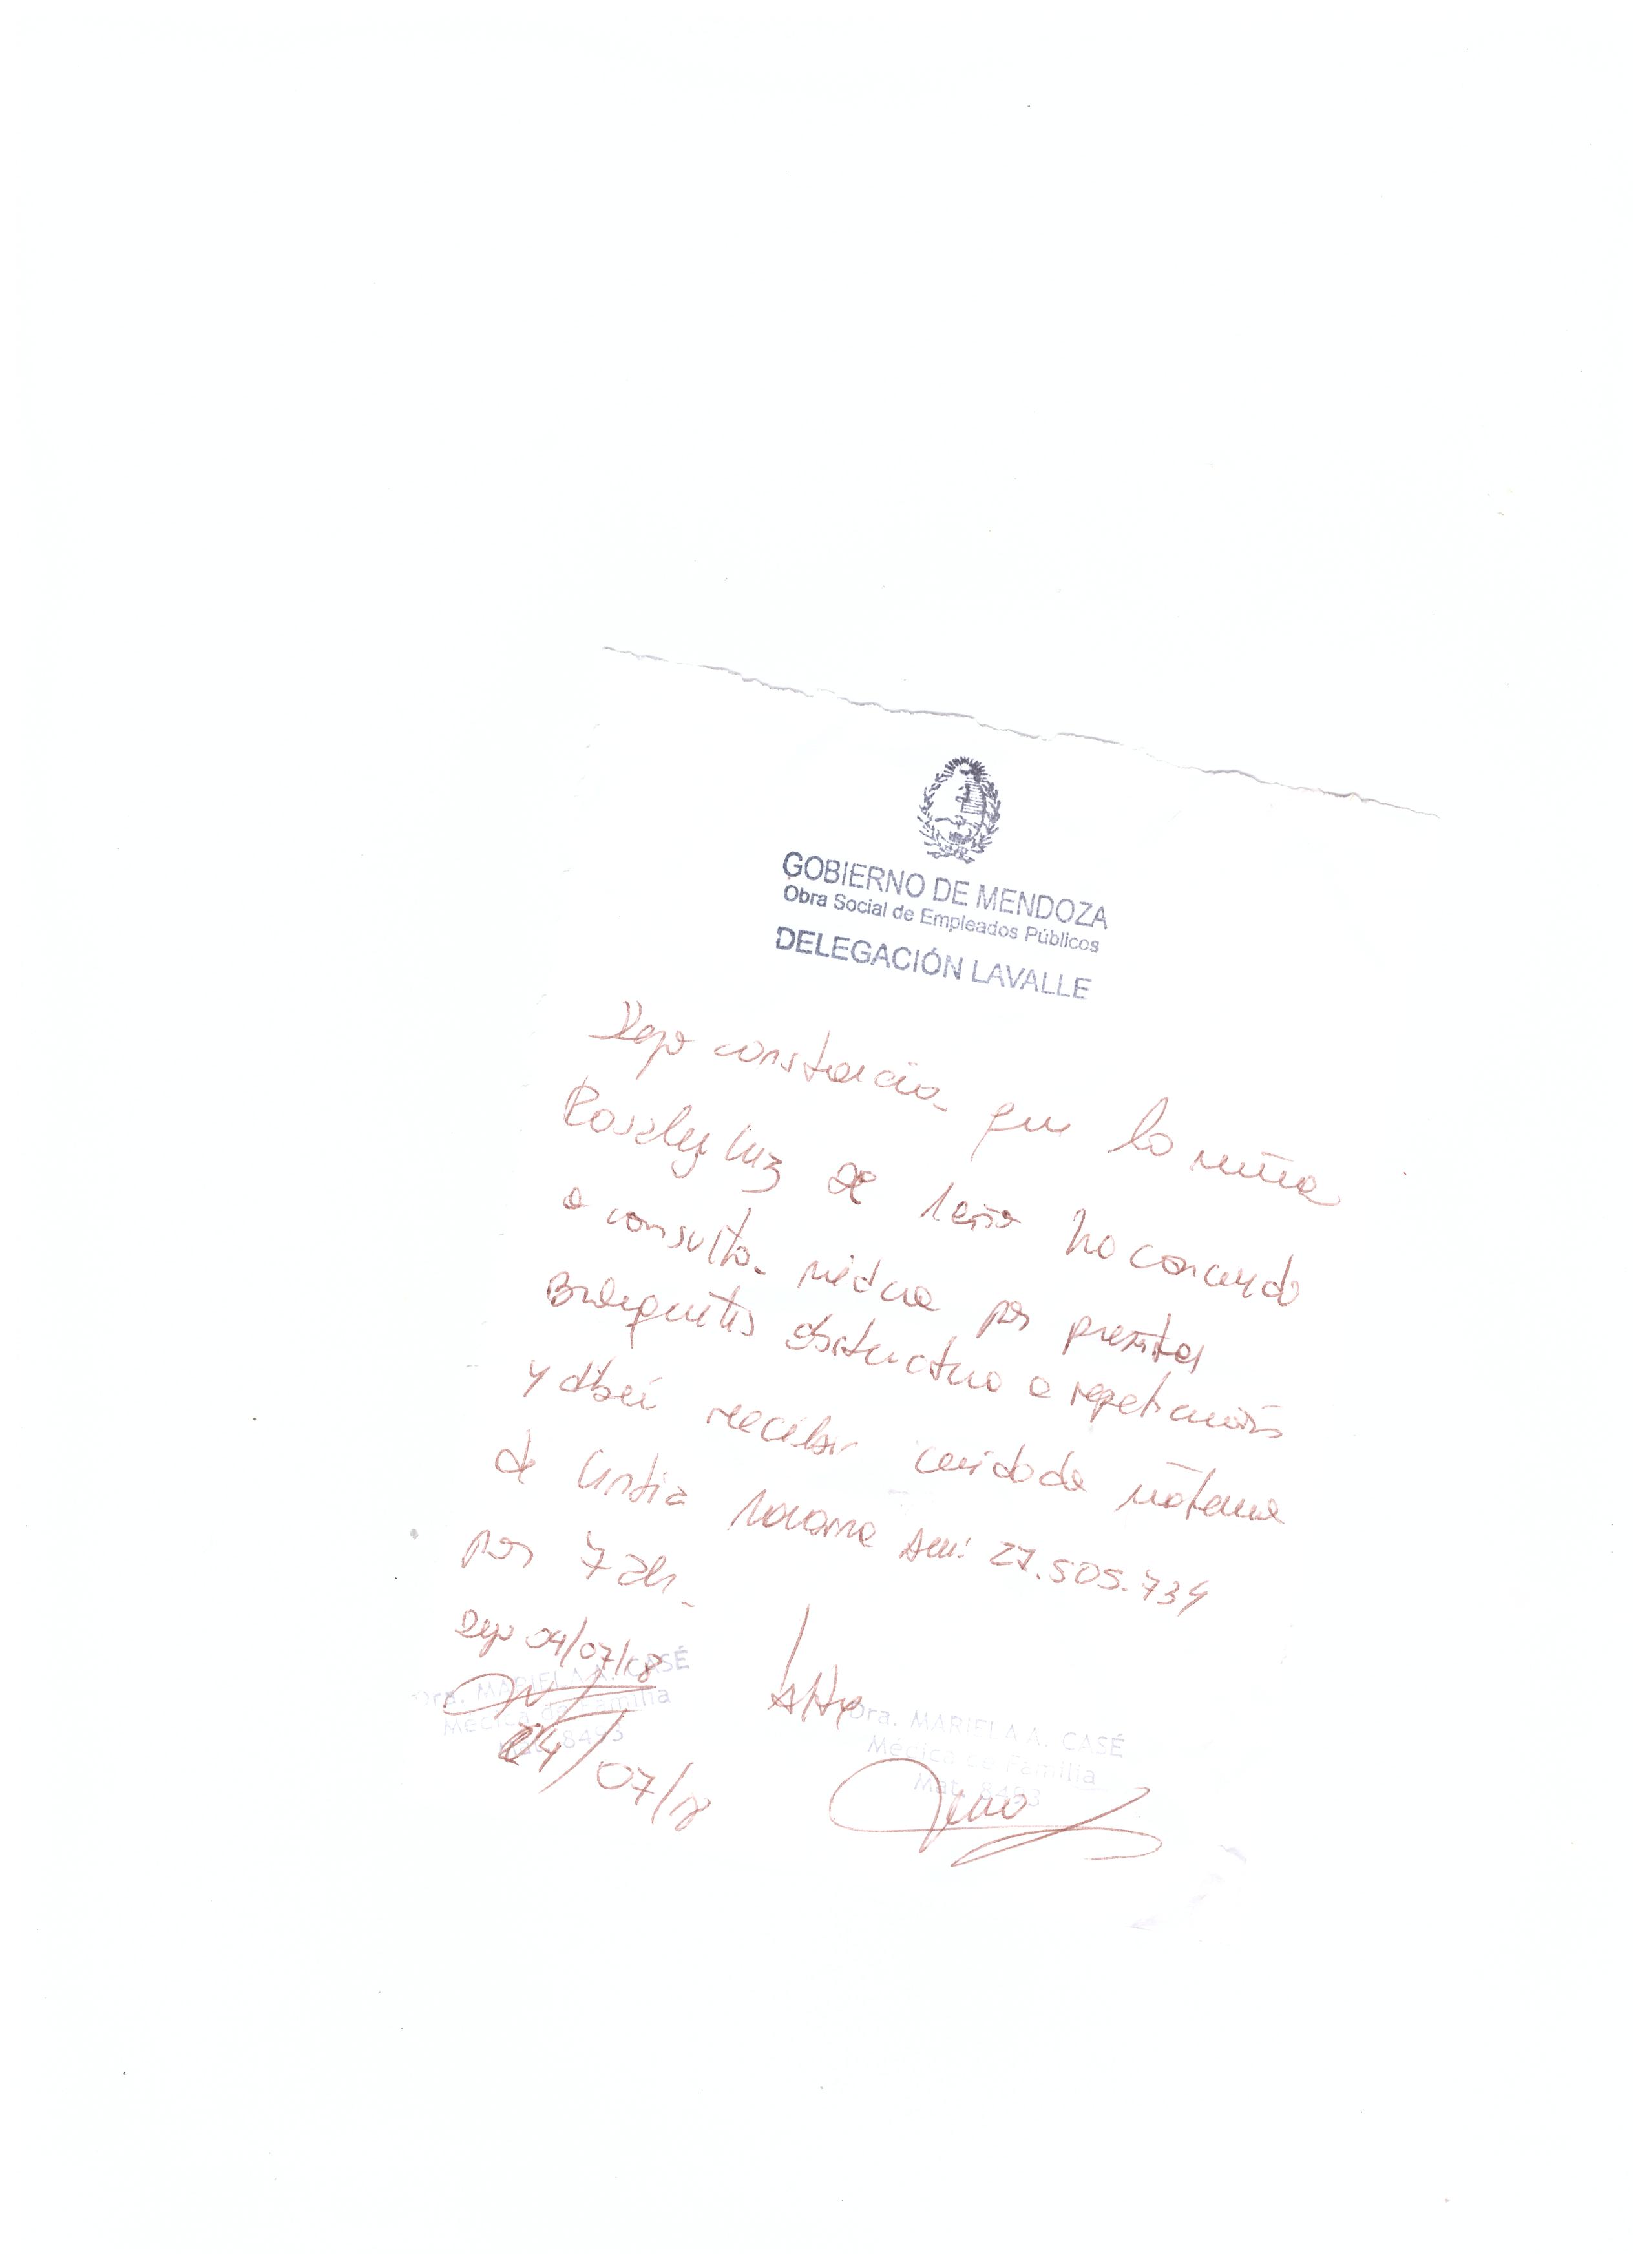 GOBIERNO DE MENDOZA
Obra Social de Empleados Públicos
DELEGACIÓN LAVALLE
Dejo constancia que la niña
Luz de 1 año ha concurrido
a consulta médica por presentar
Bronquitis obstructiva a repetición
y deberá recibir cuidado materno
de Cintia Navarro DNI: 27.505.734
por 7 días.
Digo 04/07/18
Dra. MARIELA A. CASÉ
Médica de Familia
Mat. 8493
24/07/18
Dra. MARIELA A. CASÉ
Médica de Familia
Mat. 8493